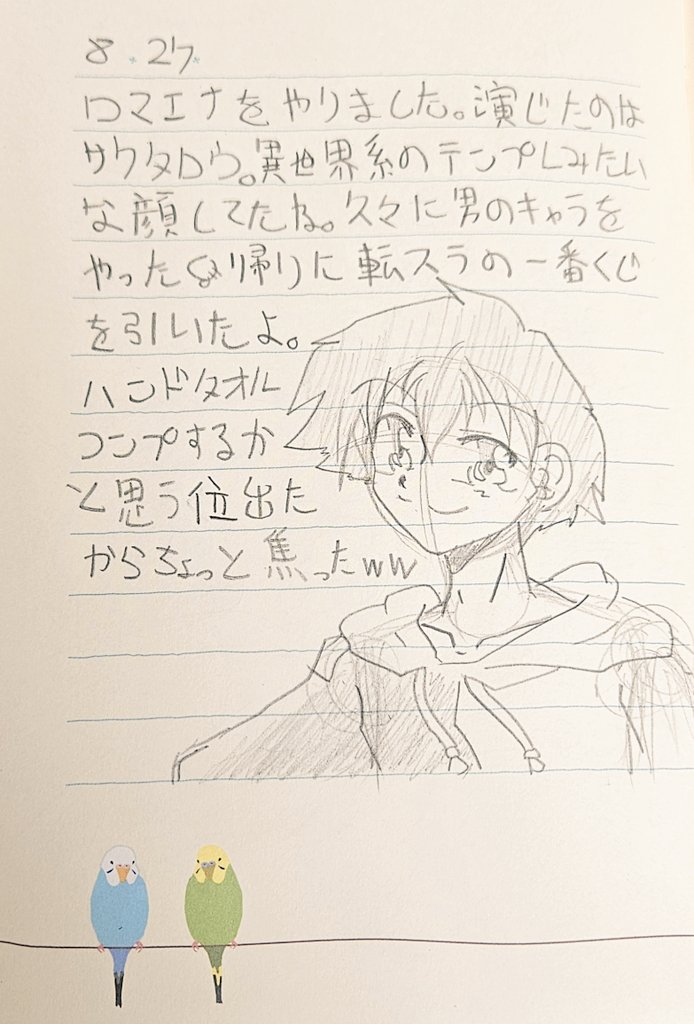 8.27
ロマエナをやりました。演じたのは
サクタロウ。異世界系のテンプレみたい
な顔してたね。久々に男のキャラを
やった 帰りに転スラの一番くじ
を引いたよ。
ハンドタオル
コンプするか
と思う位出た
からちょっと焦ったww